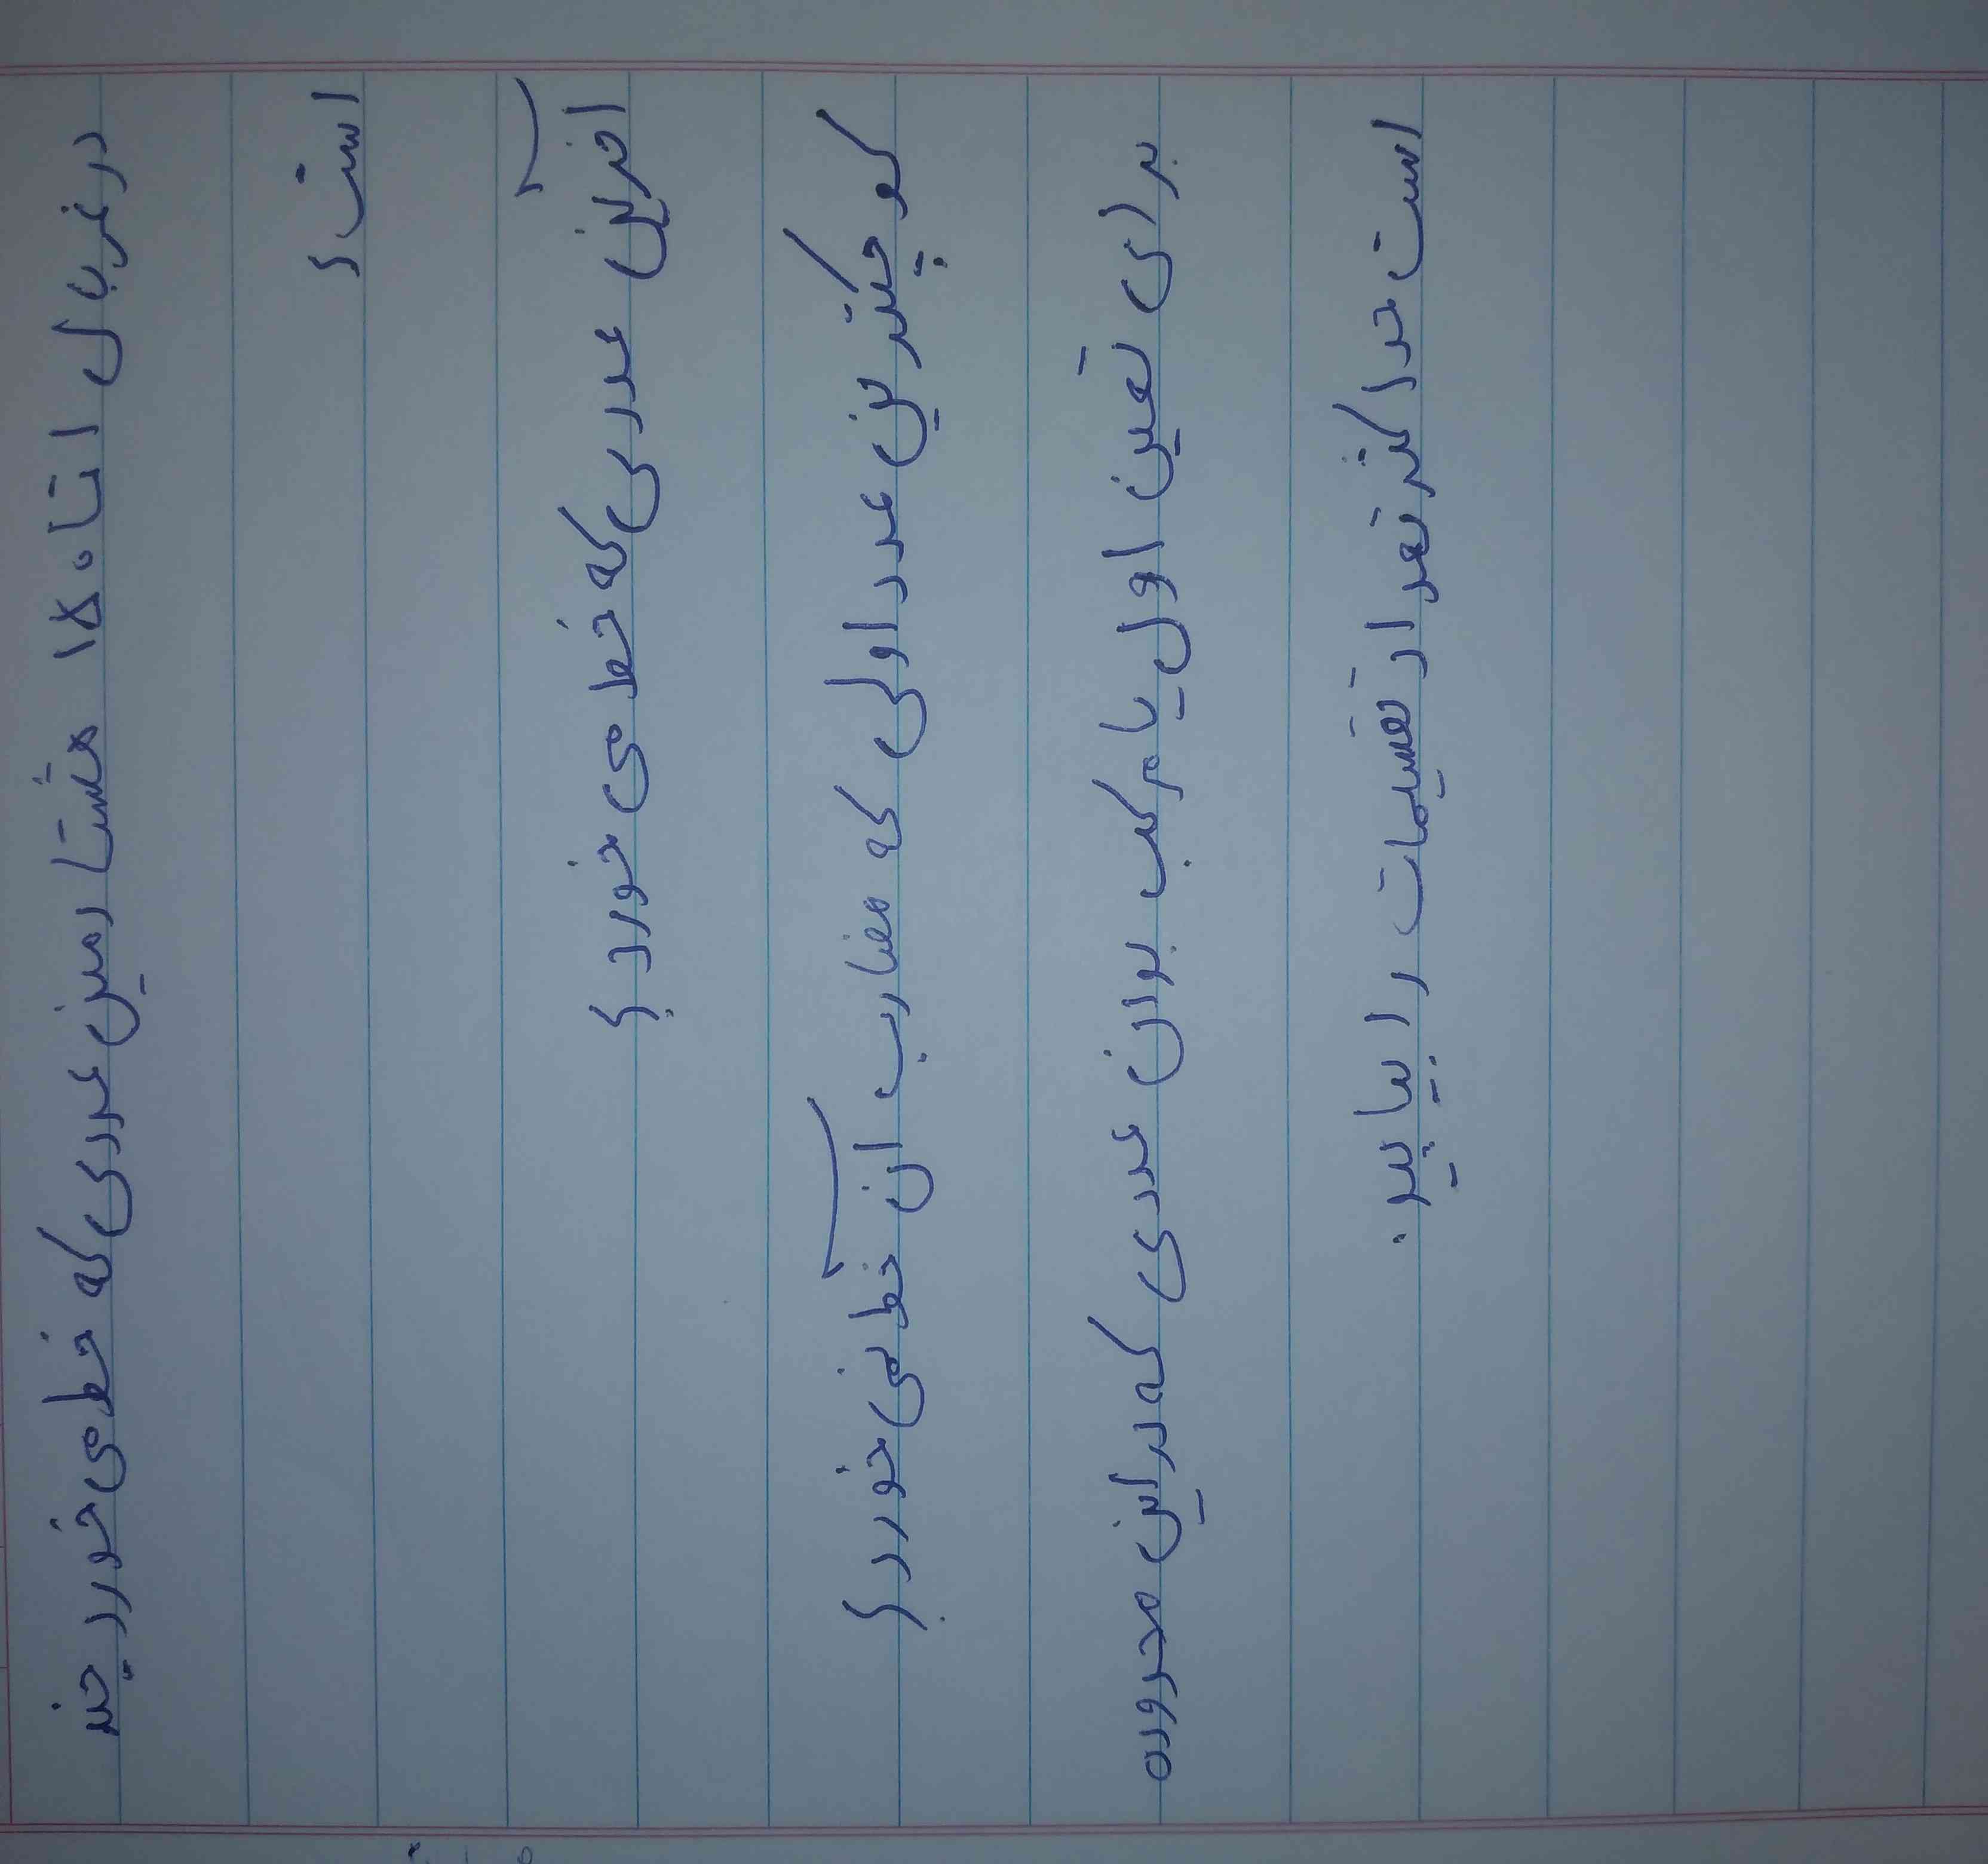 در غربال ۱ تا ۱۵۰ هشتادمین عددی که خط می خورد چند
است ؟
آخرین عددی که خط می خورد ؟
کوچکترین عدد اولی که مضارب آن خط نمی خورد ؟
برای تعین اول یا مرکب بودن عددی که در این محدوده
است حداکثر تعداد تقسیمات را بیابید.